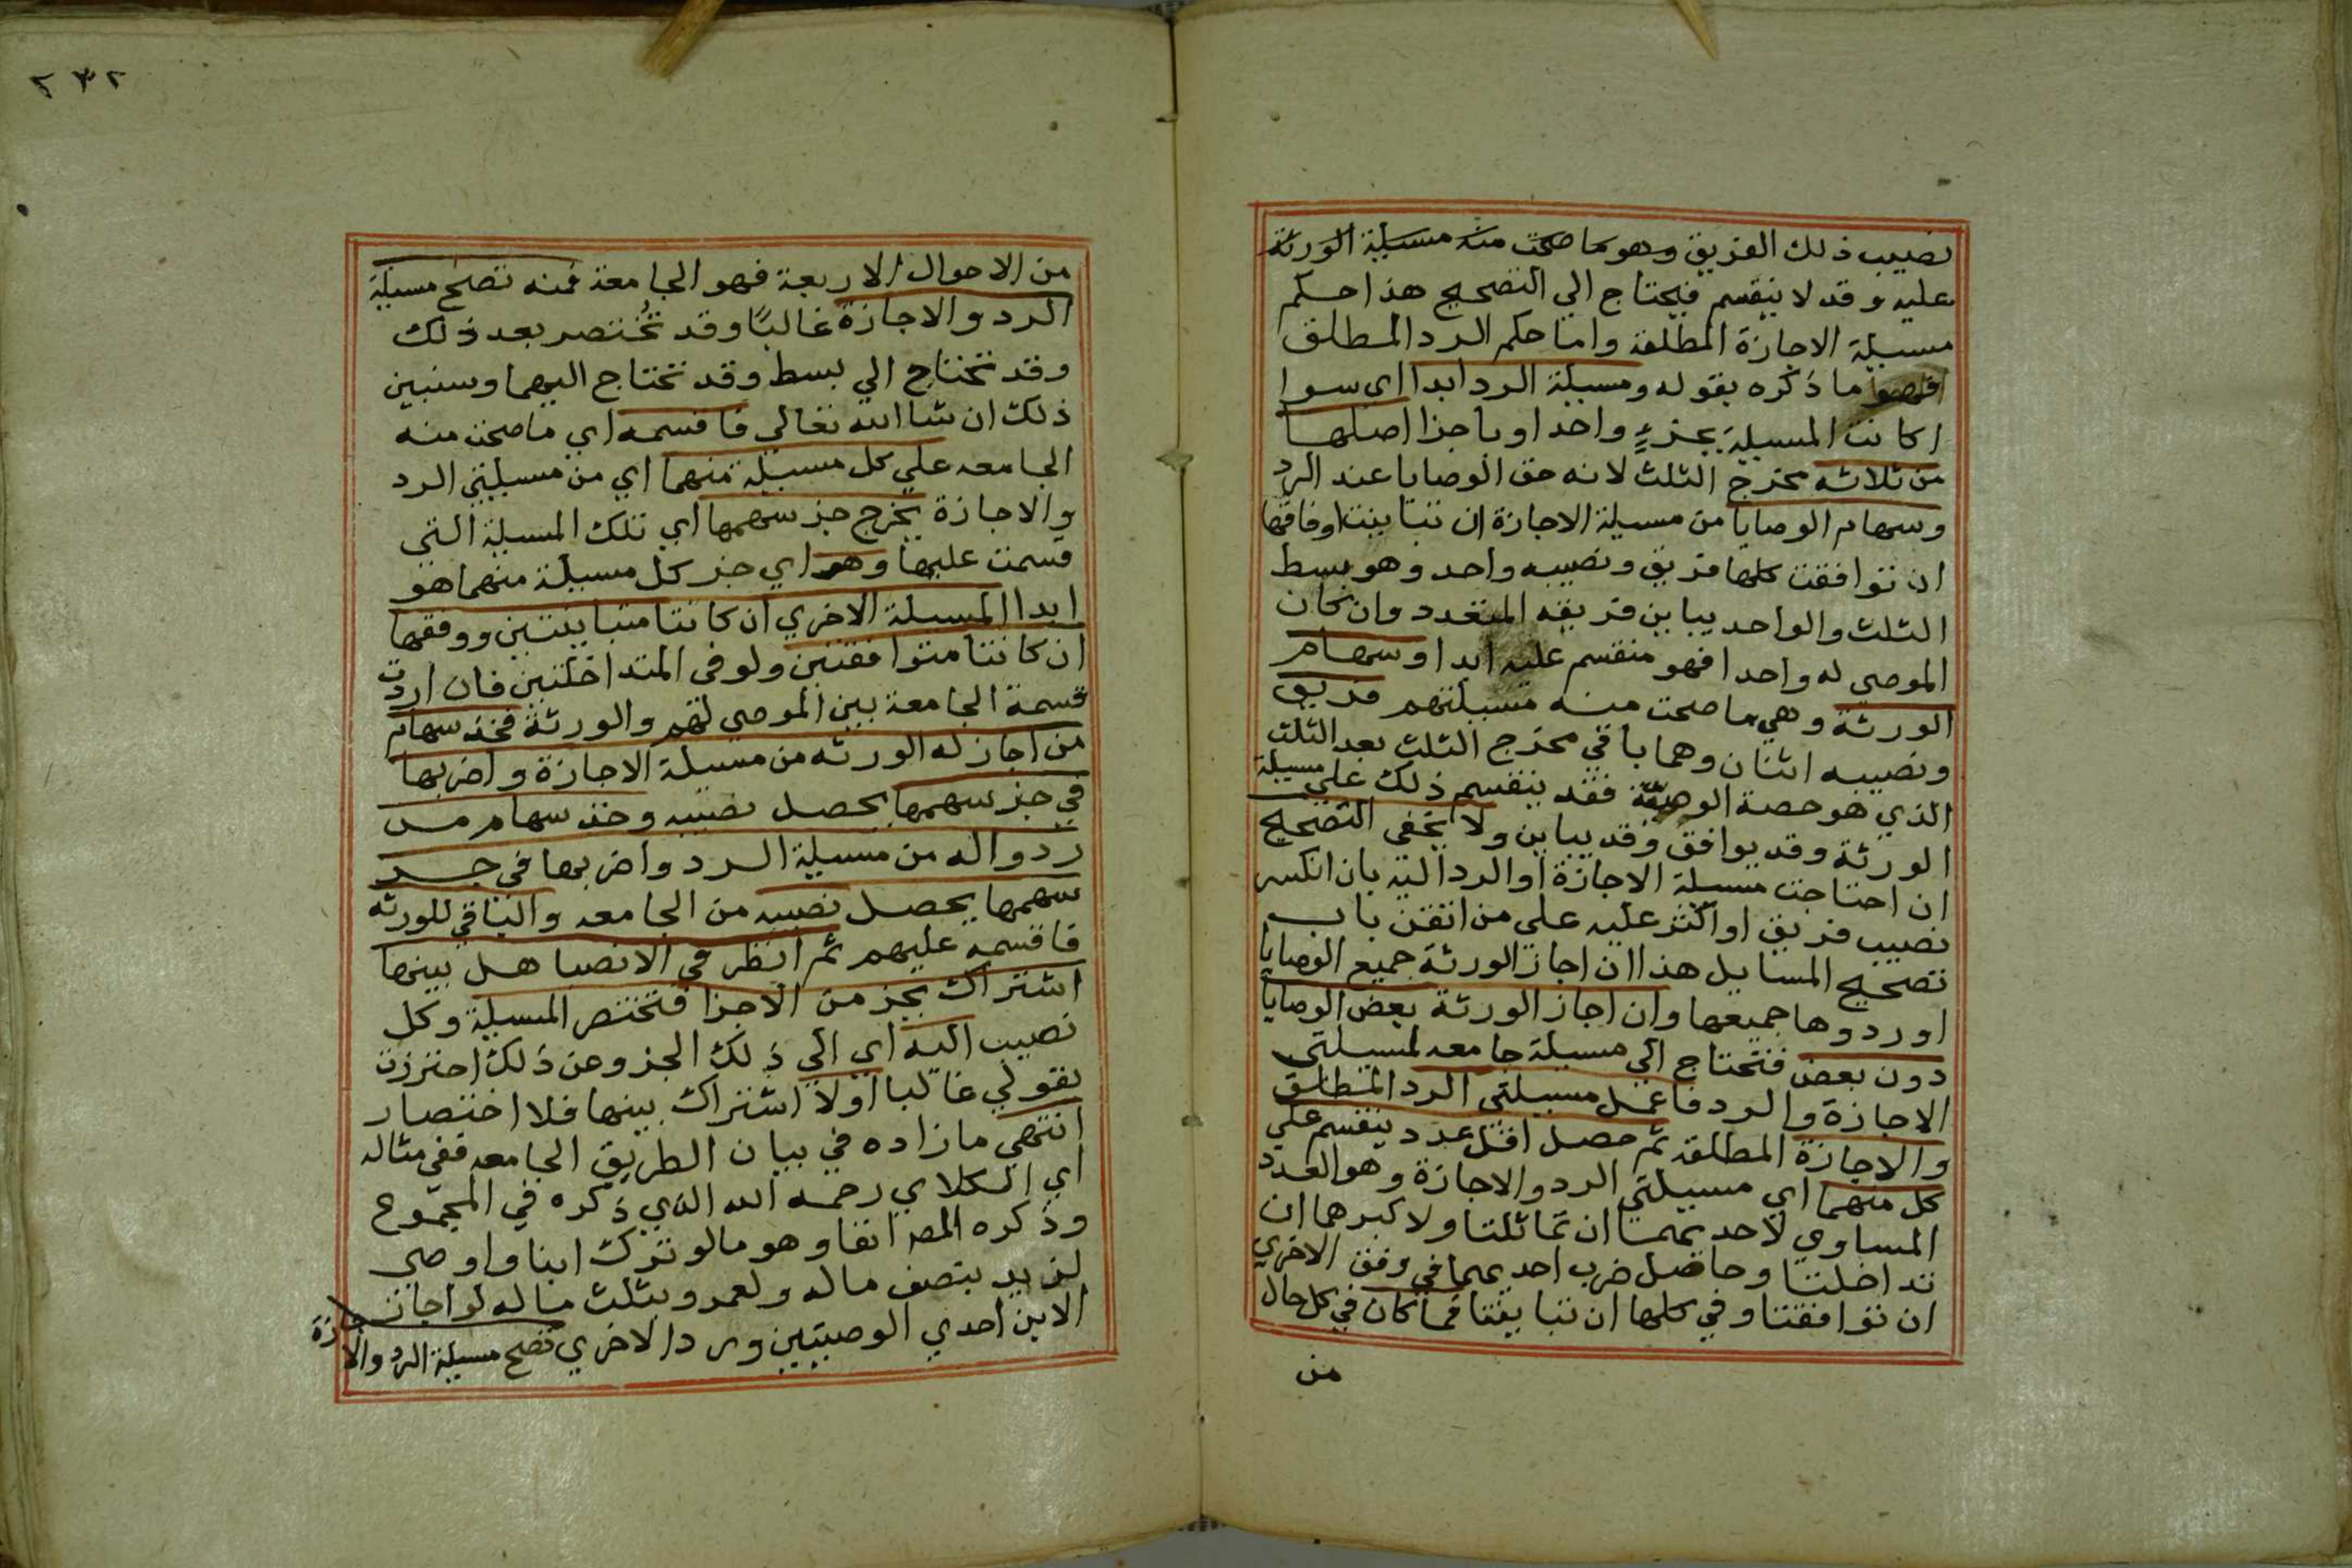 نصيب ذلك الفريق وهو ما صحت منه مسيلة الورثة
عليه وقد لا ينقسم فيحتاج الي التصحيح هذا حكم
مسيلة الاجازة المطلقة واما حكم الرد المطلق
فهو ما ذكره بقوله ومسيلة الرد ابدا اي سوا
اكانت المسيلة بجزءٍ واحد او باجزا اصلها
من ثلاثه مخرج الثلث لانه حق الوصايا عند الرد
وسهام الوصايا من مسيلة الاجازة ان تباينت اوفاقها
ان توافقت كلها فريق ونصيبه واحد وهو بسط
الثلث والواحد يباين فريقه المتعدد وان كان
الموصي له واحدا فهو منقسم عليه ابدا وسهام
الورثة وهي ما صحت منه مسيلتهم فريق
ونصيبه اثنان وهما باقي مخرج الثلث بعد الثلث
الذي هو حصة الوصية فقد ينقسم ذلك علي مسيلة
الورثة وقد يوافق وقد يباين ولا يخفي التصحيح
ان احتاجت مسيلة الاجازة او الرد اليه بان انكسر
نصيب فريق او اكثر عليه علي من اتقن باب
تصحيح المسايل هذا ان اجاز الورثة جميع الوصايا
او ردوها جميعها وان اجاز الورثة بعض الوصايا
دون بعض فتحتاج الي مسيلة جامعه لمسيلتي
الاجازة والرد فاعمل مسيلتي الرد المطلق
والاجازة المطلقة ثم حصل اقل عدد ينقسم علي
كل منهما اي مسيلتي الرد والاجازة وهو العدد
المساوي لاحديهما ان تماثلتا ولاكبرهما ان
تداخلتا وحاصل ضرب احديهما في وفق الاخري
ان توافقتا وفي كلها ان تباينتا فما كان في كل حال
من
٢٣٢
من الاحوال الاربعة فهو الجامعة فمنه تصح مسيلة
الرد والاجازة غالبًا وقد تُختصر بعد ذلك
وقد تحتاج الي بسط وقد تحتاج اليهما وسنبين
ذلك ان شا الله تعالي فاقسمه اي ما صحت منه
الجامعه علي كل مسيلة منهما اي من مسيلتي الرد
والاجازة يخرج جز سهمها اي تلك المسيلة التي
قسمت عليها وهو اي جز كل مسيلة منهما هو
ابدا المسيلة الاخري ان كانتا متباينتين ووفقها
ان كانتا متوافقتين ولو في المتداخلتين فان اردت
قسمة الجامعة بين الموصي لهم والورثة فخذ سهام
من اجاز له الورثه من مسيلة الاجازة واضربها
في جز سهمها يحصل نصيبه وخذ سهام من
ردوا له من مسيلة الرد واضربها في جز
سهمها يحصل نصيبه من الجامعه والباقي للورثه
فاقسمه عليهم ثم انظر في الانصبا هل بينها
اشتراك بجز من الاجزا فتختصر المسيلة وكل
نصيب اليه اي الي ذلك الجز وعن ذلك احترزت
بقولي غالبا اولا اشتراك بينها فلا اختصار
انتهي ما زاده في بيان الطريق الجامعه ففي مثاله
اي الكلاي رحمه الله الذي ذكره في المجموع
وذكره المصـ انفا وهو ما لو ترك ابنا واوصي
لزيد بنصف ماله ولعمرو بثلث ماله لو اجاز
الابن احدي الوصيتين ورد الاخري تصح مسيلة الرد والاجازة